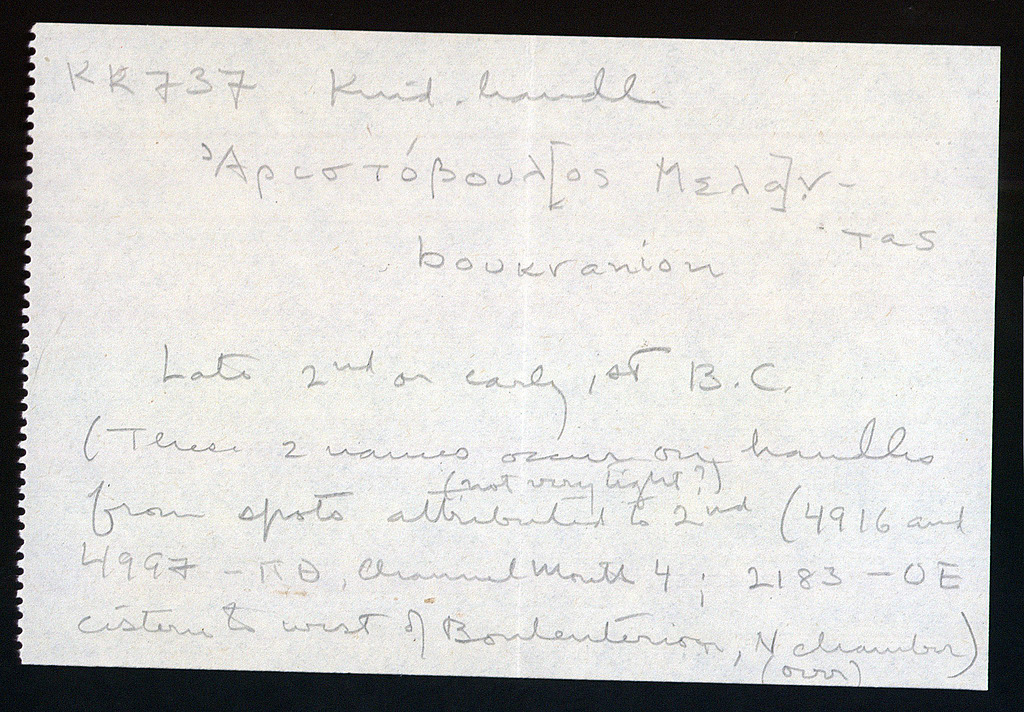 KK 737 Knid. handle
Ἀριστόβουλ[ος Μελα]ν-
τας
boukranion
Late 2nd or early 1st B.C.
(These 2 names occur on handles
(not very tight?)
from spots attributed to 2nd (4916 and
4997 - ΠΘ, Channel Mouth 4; 2183 - ΟΕ
cistern to west of Bouleuterion, N chamber)
(over)